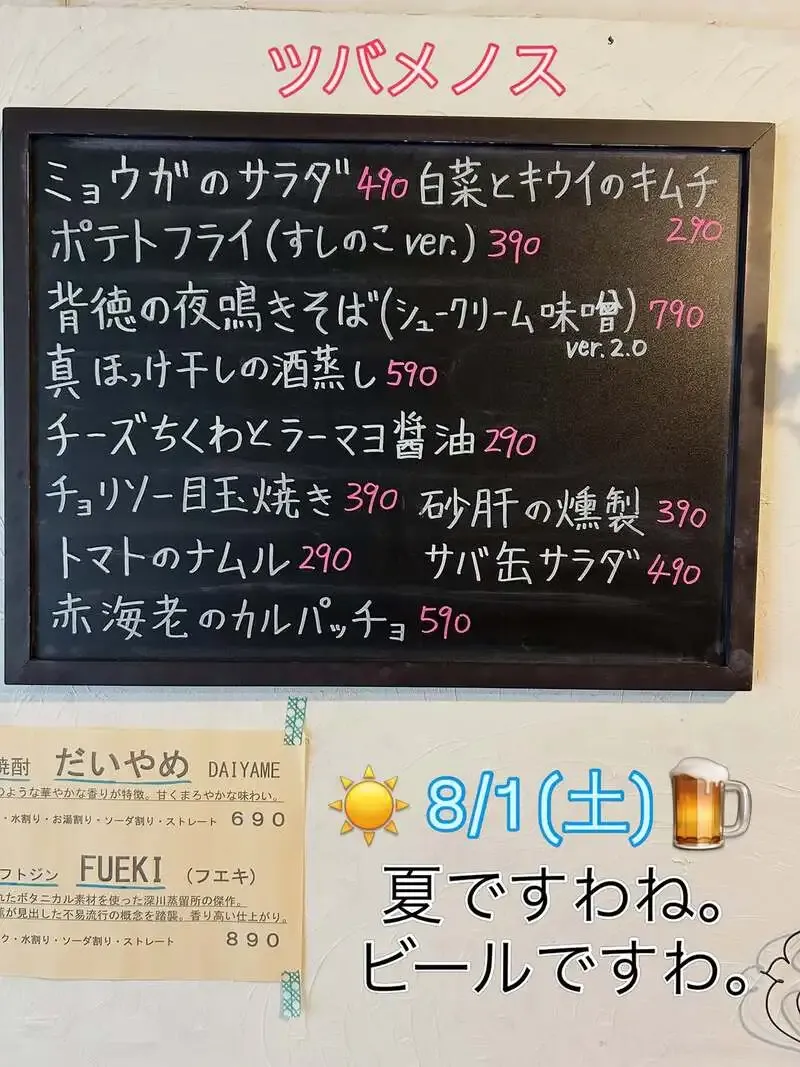 ツバメノス
ミョウガのサラダ 490 白菜とキウイのキムチ 290
ポテトフライ(すしのこ ver.) 390
背徳の夜鳴きそば(シュークリーム味噌) 790
ver.2.0
真ほっけ干しの酒蒸し 590
チーズちくわとラーマヨ醤油 290
チョリソー目玉焼き 390 砂肝の燻製 390
トマトのナムル 290 サバ缶サラダ 490
赤海老のカルパッチョ 590
焼酎 だいやめ DAIYAME
のような華やかな香りが特徴。甘くまろやかな味わい。
・水割り・お湯割り・ソーダ割り・ストレート 690
フトジン FUEKI (フエキ)
れたボタニカル素材を使った深川蒸留所の傑作。
が見出した不易流行の概念を踏襲。香り高い仕上がり。
ク・水割り・ソーダ割り・ストレート 890
8/1(土)
夏ですわね。
ビールですわ。